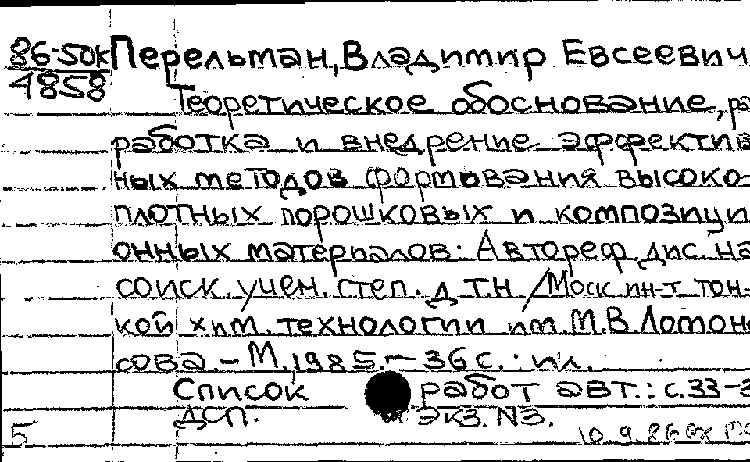 86-50к Перельман, Владимир Евсеевич
4858
Теоретическое обоснование, ра
работка и внедрение эффектив
ных методов формования высоко-
плотных порошковых и композици
онных материалов: Автореф. дис. на
соиск. учен. степ. д.т.н /Моск ин-т тон-
кой хим. технологии им. М.В Ломоно
сова. - М., 1985. - 36 с. : ил.
Список работ авт.: с.33-3
ДСП. ЭКЗ. N3.
5 10.9.86